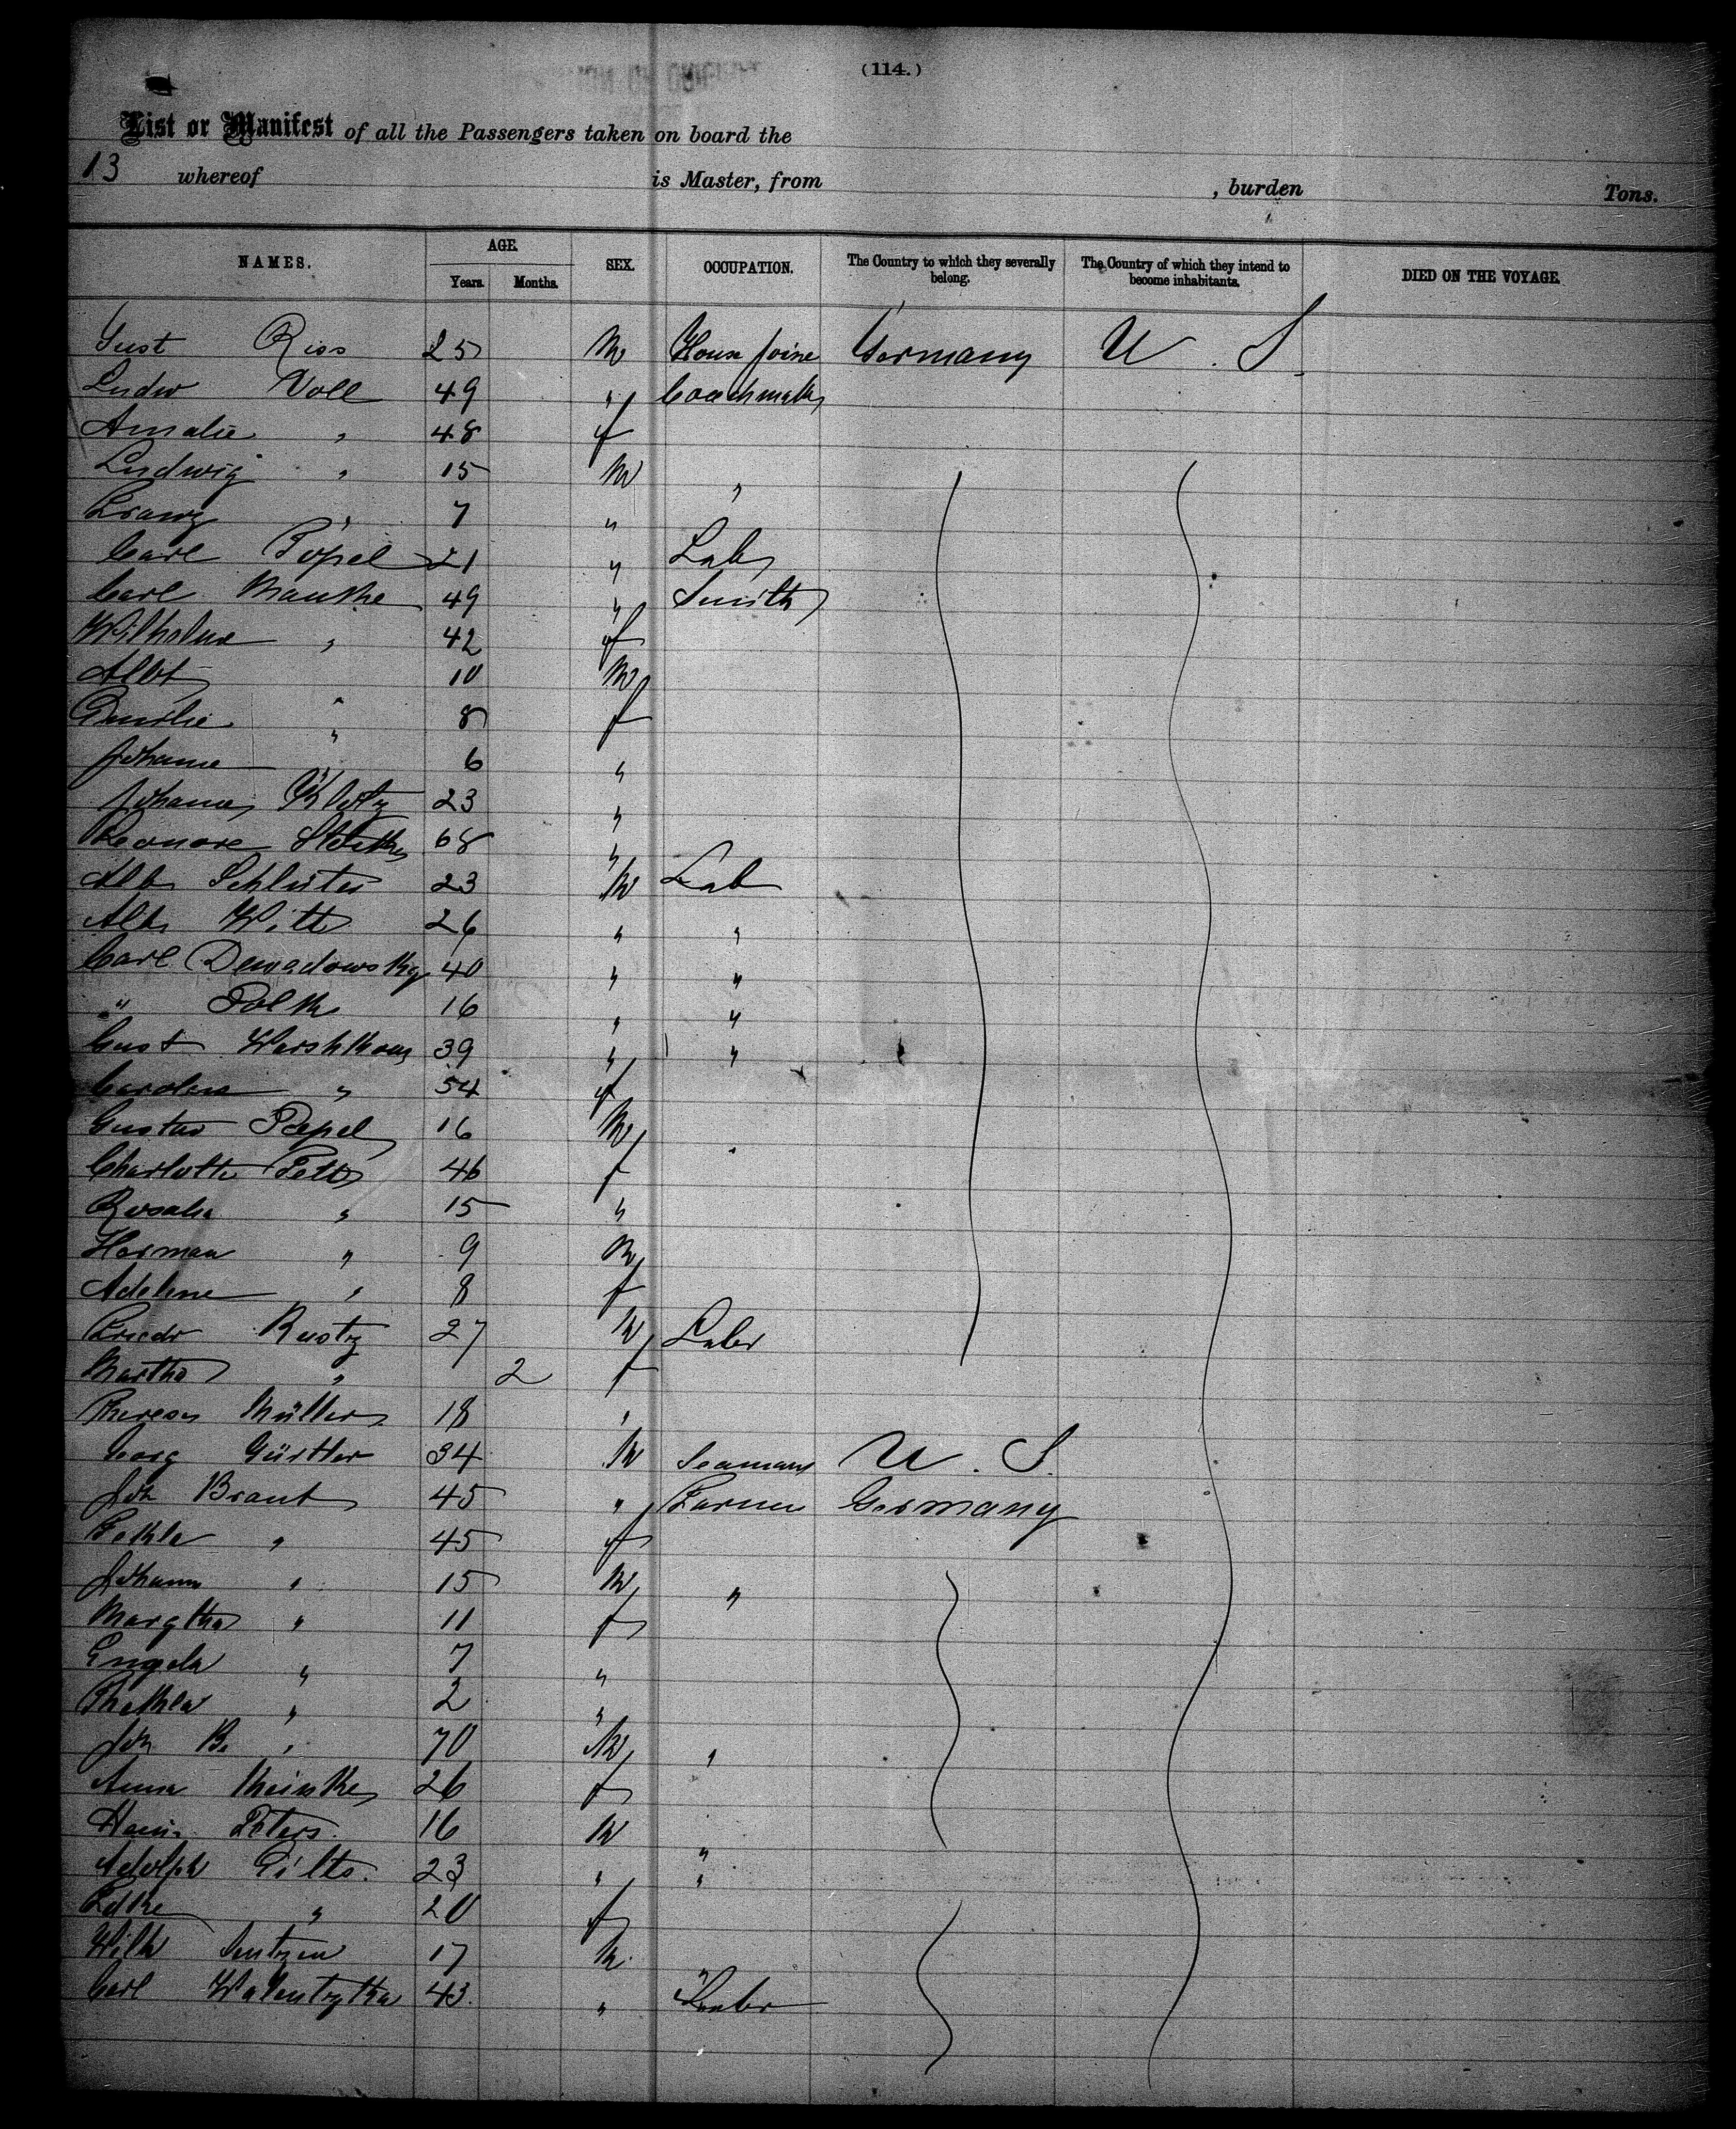 (114.)
List or Manifest of all the Passengers taken on board the
13 whereof is Master, from , burden Tons.
NAMES. AGE. Years. Months. SEX. OCCUPATION. The Country to which they severally belong. The Country of which they intend to become inhabitants. DIED ON THE VOYAGE.
Gust Riss 25 M House joine Germany U. S.
Ludw Voll 49 " Coachmak
Amalie " 48 f
Ludwig " 15 M "
Franz " 7 "
Carl Popel 21 " Lab
Carl Manthe 49 " Smith
Wilhelme " 42 f
Albt 10 M
Emilie " 8 f
Johanne " 6 "
Johanna 23 "
Leonore 68 "
Alb Schluter 23 M Lab
Alb Witt 26 " "
Carl Demadowsky 40 " "
" 16 " "
Gust 39 " "
Carolina " 54 f
Gustav Papel 16 M "
Charlotte 46 f
Rosalie " 15 "
Herman " 9 M
Adeline " 8 f
Friedr Rustz 27 M Labr
Martha " 2 f
Therese Müller 18 "
Georg Gürtler 34 M Seaman U. S.
Joh Brant 45 " Farmer Germany
" 45 f
Johann " 15 M "
Margtha " 11 f
Engela " 7 "
Thekla " 2 "
Joh B. " 70 M "
Anna Meinke 26 f
Heinr Peters 16 M "
Adolph Gilts. 23 " "
" 20 f
Wilh 17 M "
Carl 43 " Labr